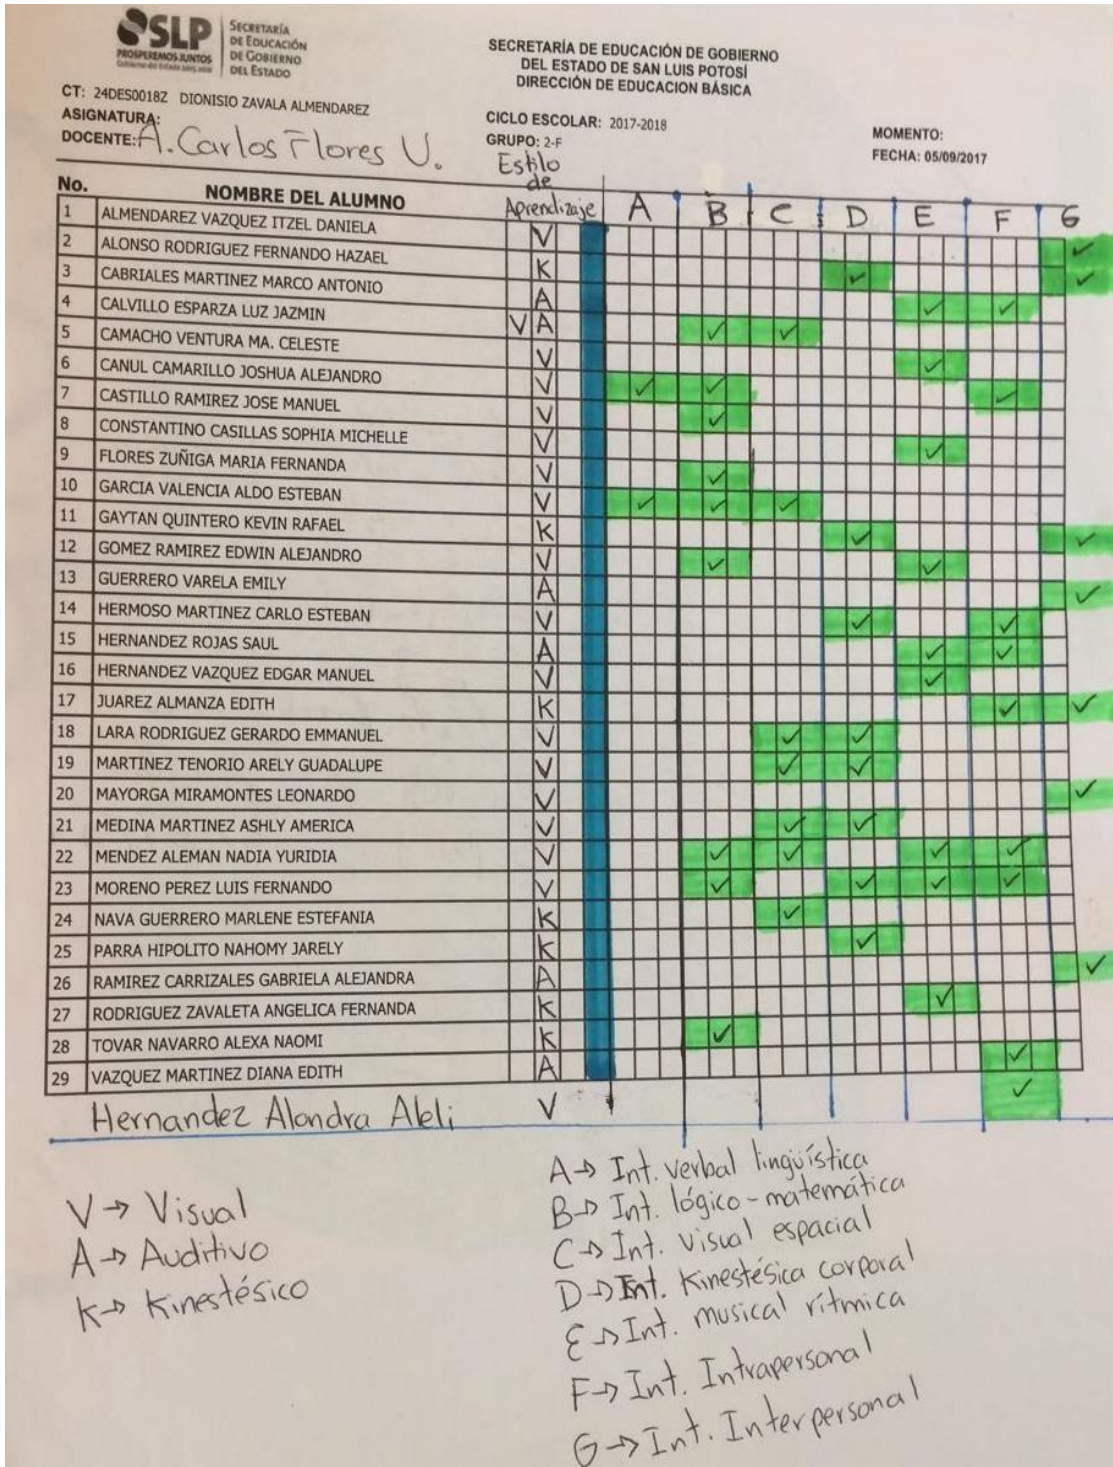 SLP
PROSPEREMOS JUNTOS
Gobierno del Estado 2015-2021
SECRETARÍA
DE EDUCACIÓN
DE GOBIERNO
DEL ESTADO
SECRETARÍA DE EDUCACIÓN DE GOBIERNO
DEL ESTADO DE SAN LUIS POTOSÍ
DIRECCIÓN DE EDUCACION BÁSICA
CT: 24DES0018Z DIONISIO ZAVALA ALMENDAREZ
ASIGNATURA:
DOCENTE: A. Carlos Flores U.
CICLO ESCOLAR: 2017-2018
GRUPO: 2-F
MOMENTO:
FECHA: 05/09/2017
Estilo
de
Aprendizaje
No. NOMBRE DEL ALUMNO A B C D E F G
1 ALMENDAREZ VAZQUEZ ITZEL DANIELA V ✓
2 ALONSO RODRIGUEZ FERNANDO HAZAEL K ✓ ✓
3 CABRIALES MARTINEZ MARCO ANTONIO A ✓ ✓
4 CALVILLO ESPARZA LUZ JAZMIN V A ✓ ✓
5 CAMACHO VENTURA MA. CELESTE V ✓
6 CANUL CAMARILLO JOSHUA ALEJANDRO V ✓ ✓ ✓
7 CASTILLO RAMIREZ JOSE MANUEL V ✓
8 CONSTANTINO CASILLAS SOPHIA MICHELLE V ✓
9 FLORES ZUÑIGA MARIA FERNANDA V ✓
10 GARCIA VALENCIA ALDO ESTEBAN V ✓ ✓ ✓
11 GAYTAN QUINTERO KEVIN RAFAEL K ✓ ✓
12 GOMEZ RAMIREZ EDWIN ALEJANDRO V ✓ ✓
13 GUERRERO VARELA EMILY A ✓
14 HERMOSO MARTINEZ CARLO ESTEBAN V ✓ ✓
15 HERNANDEZ ROJAS SAUL A ✓ ✓
16 HERNANDEZ VAZQUEZ EDGAR MANUEL V ✓
17 JUAREZ ALMANZA EDITH K ✓ ✓
18 LARA RODRIGUEZ GERARDO EMMANUEL V ✓ ✓
19 MARTINEZ TENORIO ARELY GUADALUPE V ✓ ✓
20 MAYORGA MIRAMONTES LEONARDO V ✓
21 MEDINA MARTINEZ ASHLY AMERICA V ✓ ✓
22 MENDEZ ALEMAN NADIA YURIDIA V ✓ ✓ ✓ ✓
23 MORENO PEREZ LUIS FERNANDO V ✓ ✓ ✓ ✓
24 NAVA GUERRERO MARLENE ESTEFANIA K ✓
25 PARRA HIPOLITO NAHOMY JARELY K ✓
26 RAMIREZ CARRIZALES GABRIELA ALEJANDRA A ✓
27 RODRIGUEZ ZAVALETA ANGELICA FERNANDA K ✓
28 TOVAR NAVARRO ALEXA NAOMI K ✓
29 VAZQUEZ MARTINEZ DIANA EDITH A ✓
Hernandez Alondra Aleli V ✓
V → Visual
A → Auditivo
K → Kinestésico
A → Int. verbal lingüística
B → Int. lógico-matemática
C → Int. visual espacial
D → Int. Kinestésica corporal
E → Int. musical rítmica
F → Int. Intrapersonal
G → Int. Interpersonal